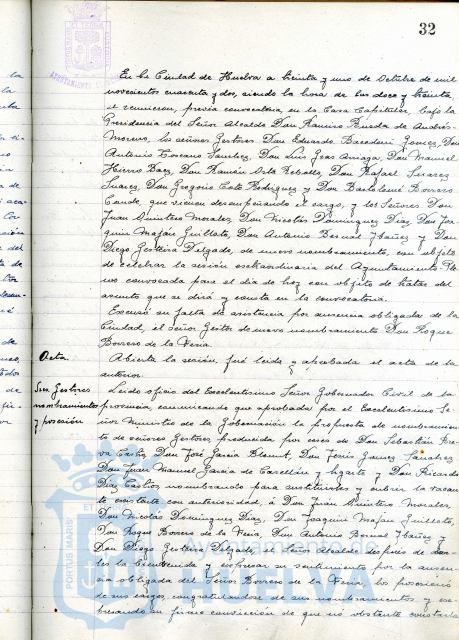 32
En la Ciudad de Huelva a treinta y uno de Octubre de mil
novecientos cuarenta y dos, siendo la hora de las doce y treinta
se reunieron, previa convocatoria, en la Casa Capitular, bajo la
Presidencia del Señor Alcalde Don Ramiro Rueda de Andrés-
Moreno, los señores Gestores Don Eduardo Gómez, Don
Antonio Toscano Sánchez, Don Luis Arriaga, Don Manuel
Hierro Baez, Don Ramón Rebollo, Don Rafael Suarez
Suarez, Don Gregorio Rodriguez y Don Bartolomé Borrero
Conde, que vienen desempeñando el cargo, y los Señores Don
Juan Quintero Morales, Don Nicolás Dominguez Diaz, Don Joa-
quin Maján Guillote, Don Antonio Bernal Ibañez y Don
Diego Delgado, de nuevo nombramiento, con objeto
de celebrar la sesión extraordinaria del Ayuntamiento Ple-
no convocada para el dia de hoy con objeto de tratar del
asunto que se dirá y consta en la convocatoria.
Excusó su falta de asistencia por ausencia obligada de la
Ciudad, el señor Gestor de nuevo nombramiento Don Roque
Borrero de la Feria.
Acta Abierta la sesión, fué leida y aprobada el acta de la
anterior.
Sres Gestores Leido oficio del Excelentísimo Señor Gobernador Civil de la
nombramientos provincia, comunicando que aprobada por el Excelentísimo Se-
y posesión ñor Ministro de la Gobernación la propuesta de nombramien-
to de señores Gestores producida por ceses de Don Sebastián
Don José García Don Gomez Sanchez
Don Juan Manuel García de Castellón y Ugarte y Don Ricardo
Diaz nombrando para sustituirles y cubrir la vacan-
te existente con anterioridad, á Don Juan Quintero Morales,
Don Nicolás Dominguez Diaz, Don Joaquin Maján Guillote,
Don Roque Borrero de la Feria, Don Antonio Bernal Ibañez y
Don Diego Delgado, el Señor Alcalde después de dar-
les la bienvenida y expresar su sentimiento por la ausen-
cia obligada del Señor Borrero de la Feria, los posesionó
de sus cargos, congratulándose de sus nombramientos y ex-
presando su firme convicción de que nó obstante constarle
PORTUS MARIS ET
Ayuntamiento de
HUELVA